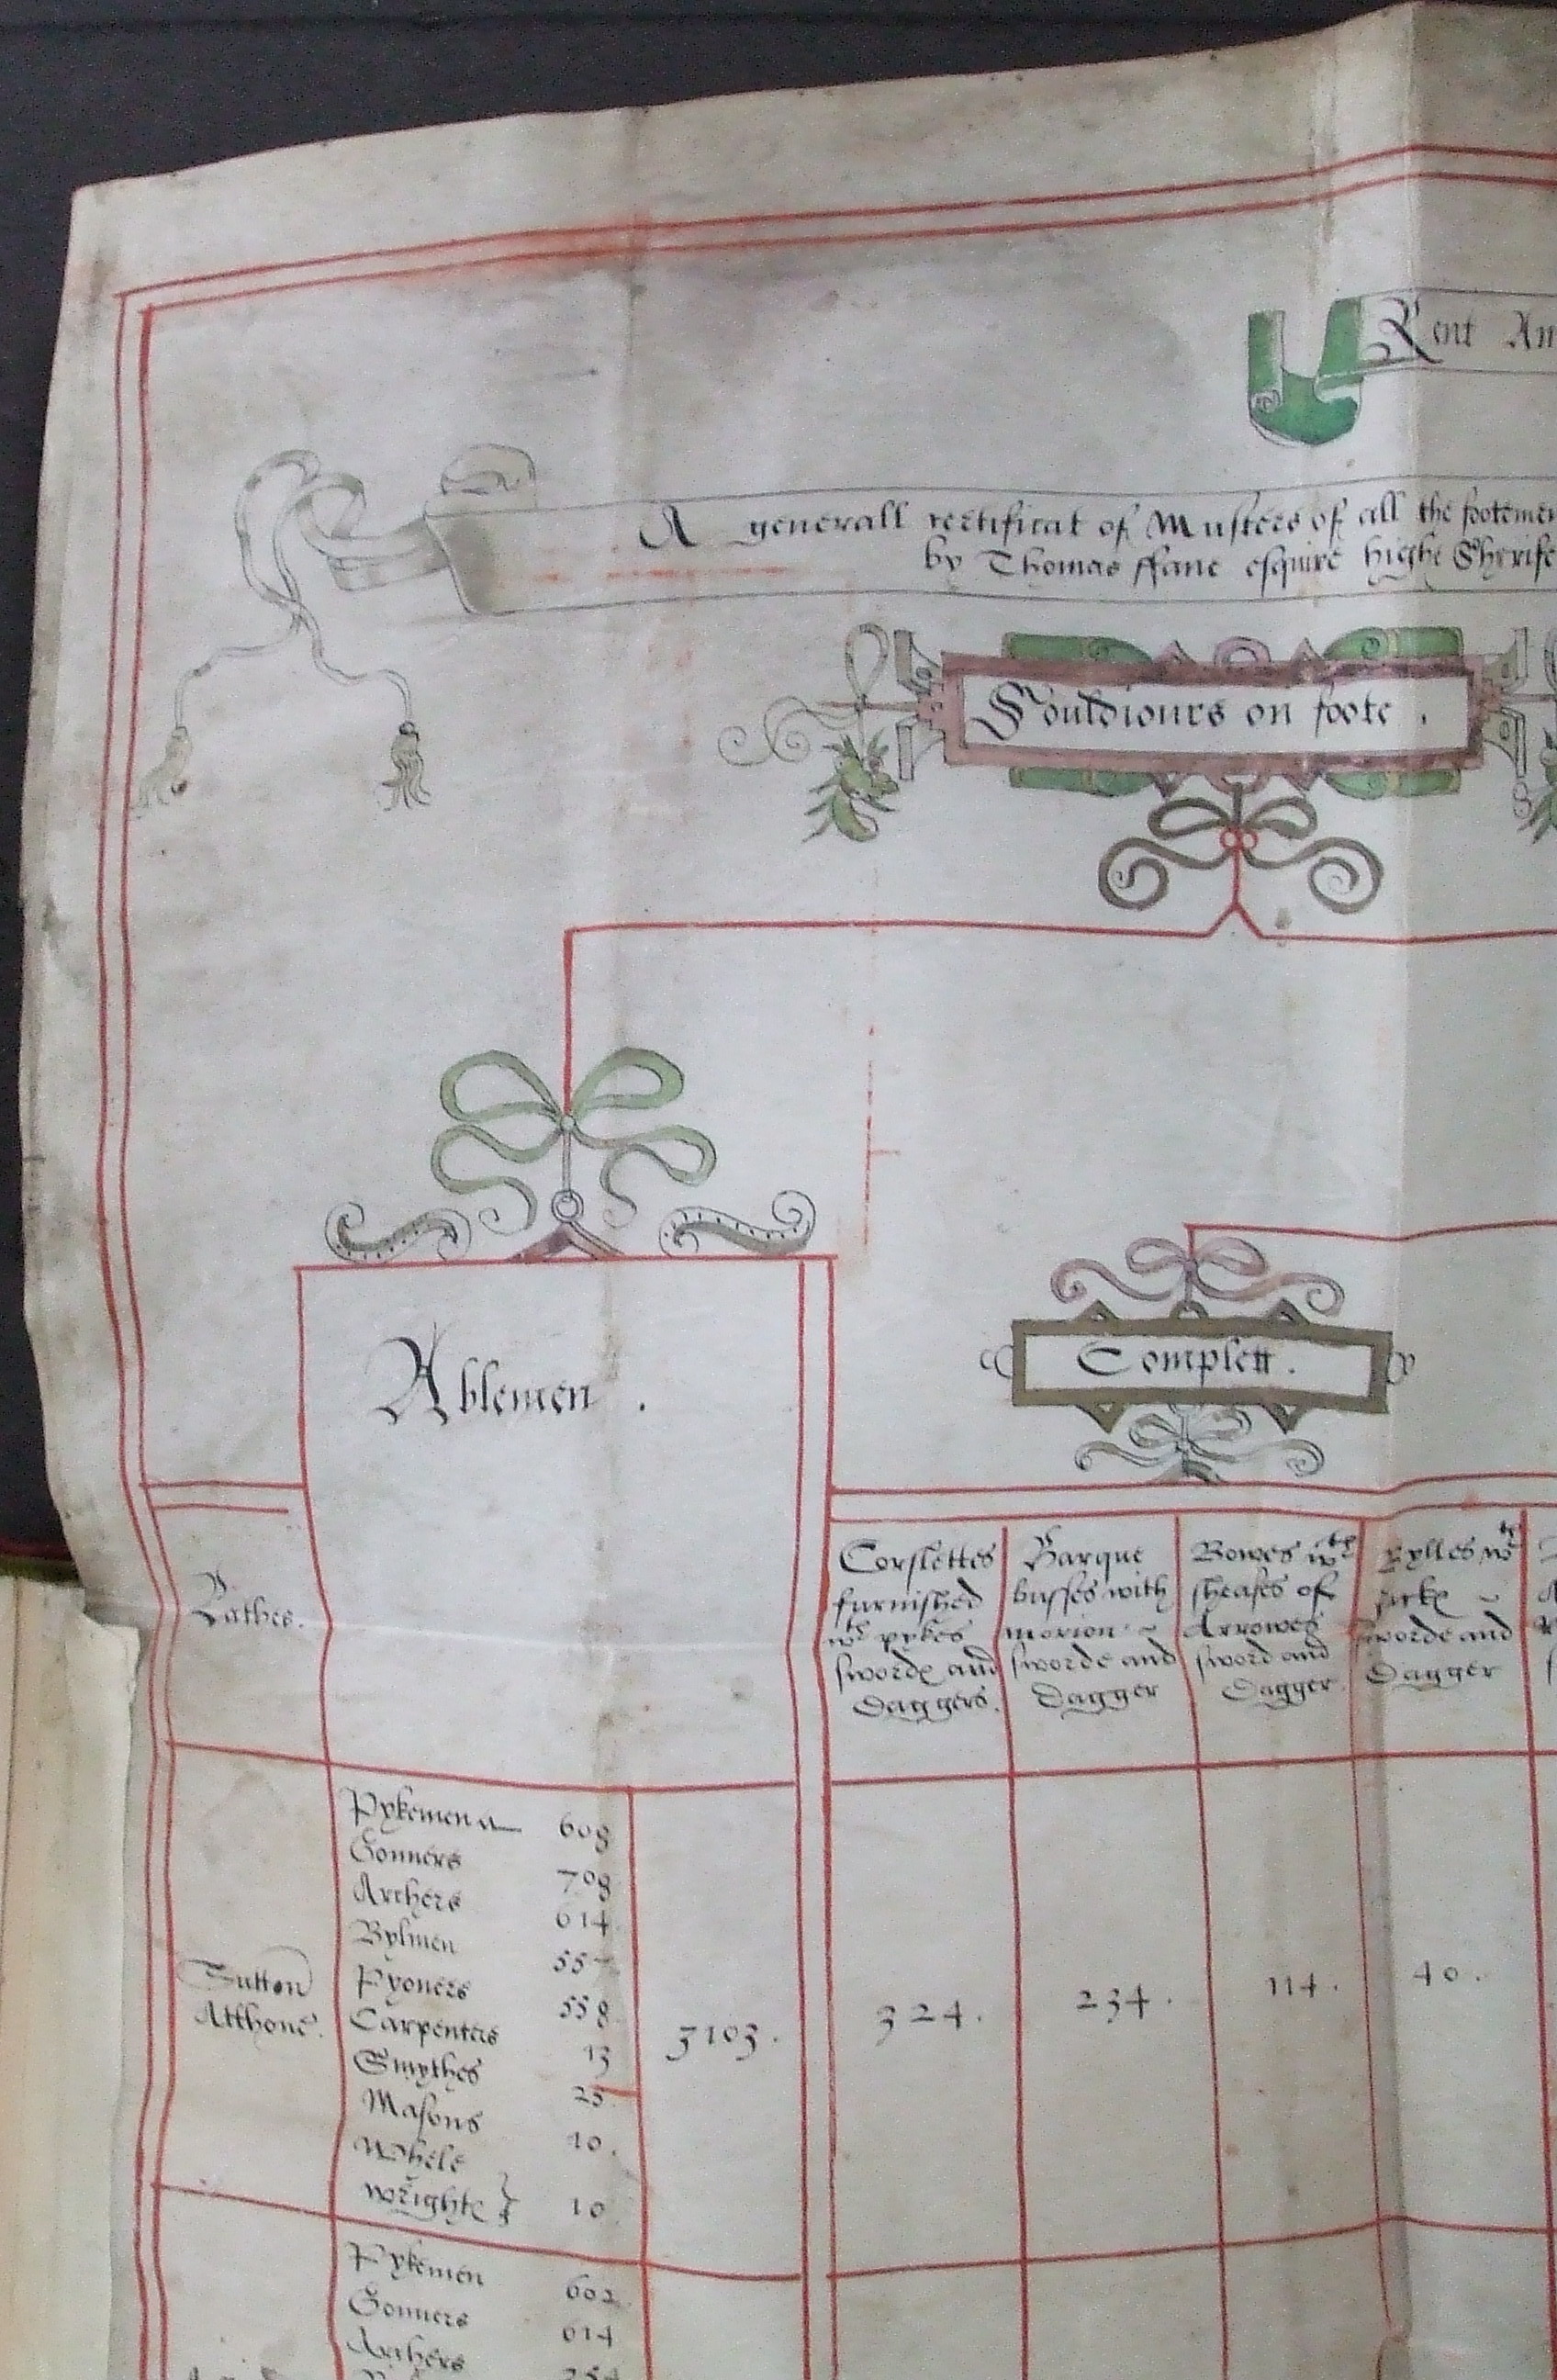 Kent An
A generall certificat of Musters of all the footemen
by Thomas ffane esquire highe Sherife
Souldiours on foote .
Ablemen .
Complett .
Lathes .
Corslettes
furnished
wth pykes
sworde and
Daggers .
Harque
busses with
morion ~
sworde and
Dagger
Bowes wth
sheafes of
Arrowes
sword and
Dagger
Bylles wth
Jacke ~
sworde and
Dagger
Sutton
Atthone .
Pykemen 608
Gonners 708
Archers 614
Bylmen 557
Pyoners 558
Carpenters 13
Smythes 25
Masons 10 .
Whele
wrighte } 10
3103 .
324 .
234 .
114 .
40 .
Pykemen 602
Gonners 614
Archers